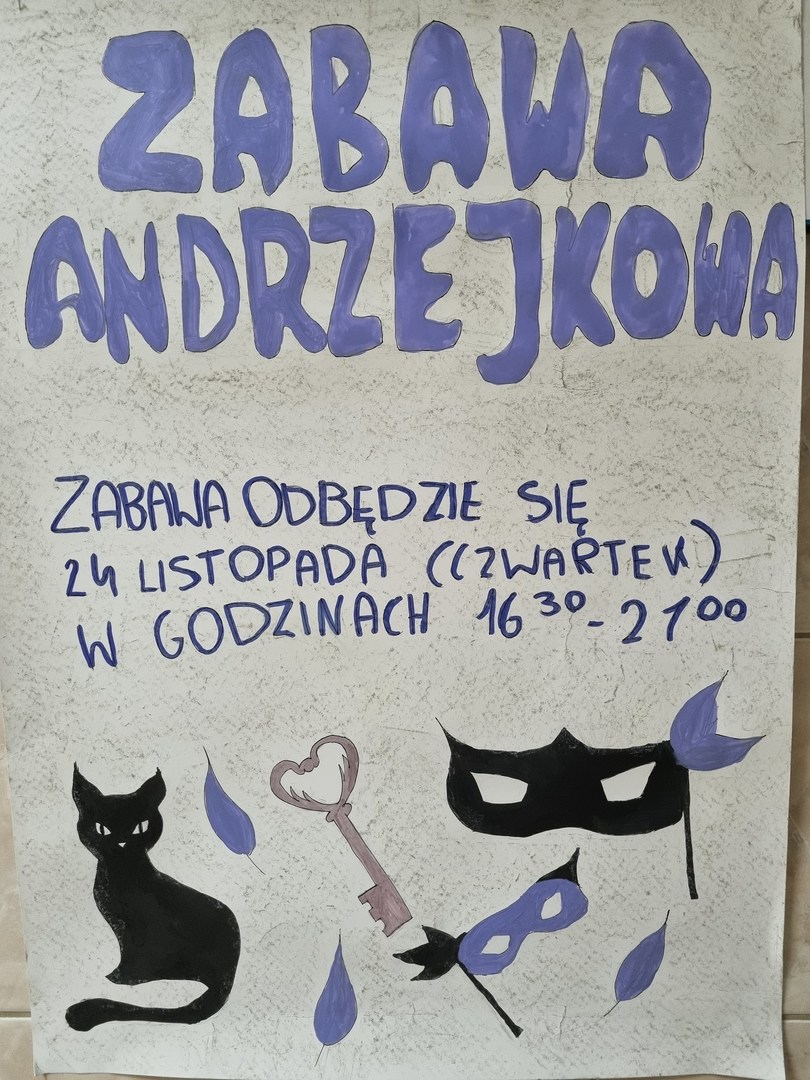 ZABAWA
ANDRZEJKOWA
ZABAWA ODBĘDZIE SIĘ
24 LISTOPADA (CZWARTEK)
W GODZINACH 16³⁰-21⁰⁰